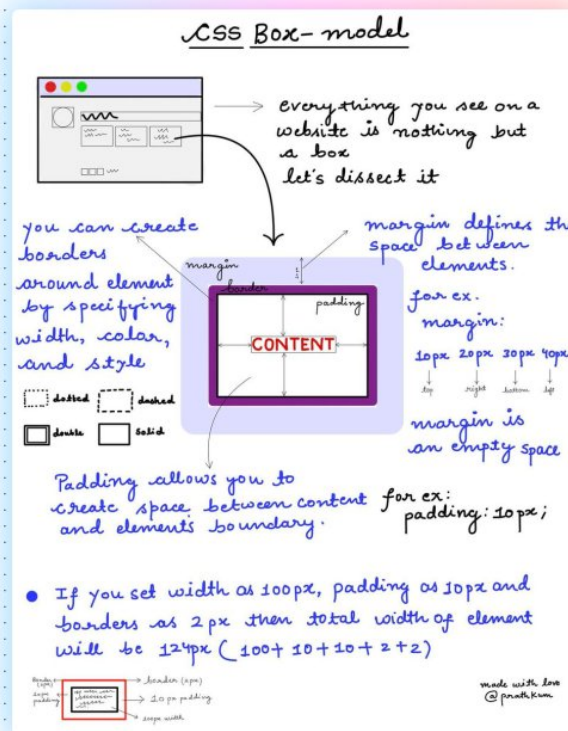 CSS Box-model
everything you see on a
website is nothing but
a box
let's dissect it
you can create
borders
around element
by specifying
width, color,
and style
dotted dashed
double solid
margin
border
padding
CONTENT
margin defines th
space between
elements.
for ex.
margin:
10px 20px 30px 40px
top right bottom left
margin is
an empty space
Padding allows you to
create space between content
and elements boundary.
for ex:
padding: 10px;
If you set width as 100px, padding as 10px and
borders as 2px then total width of element
will be 124px (100+10+10+2+2)
Border
(2px)
10px
padding
border (2px)
10px padding
100px width
made with love
@prathkum